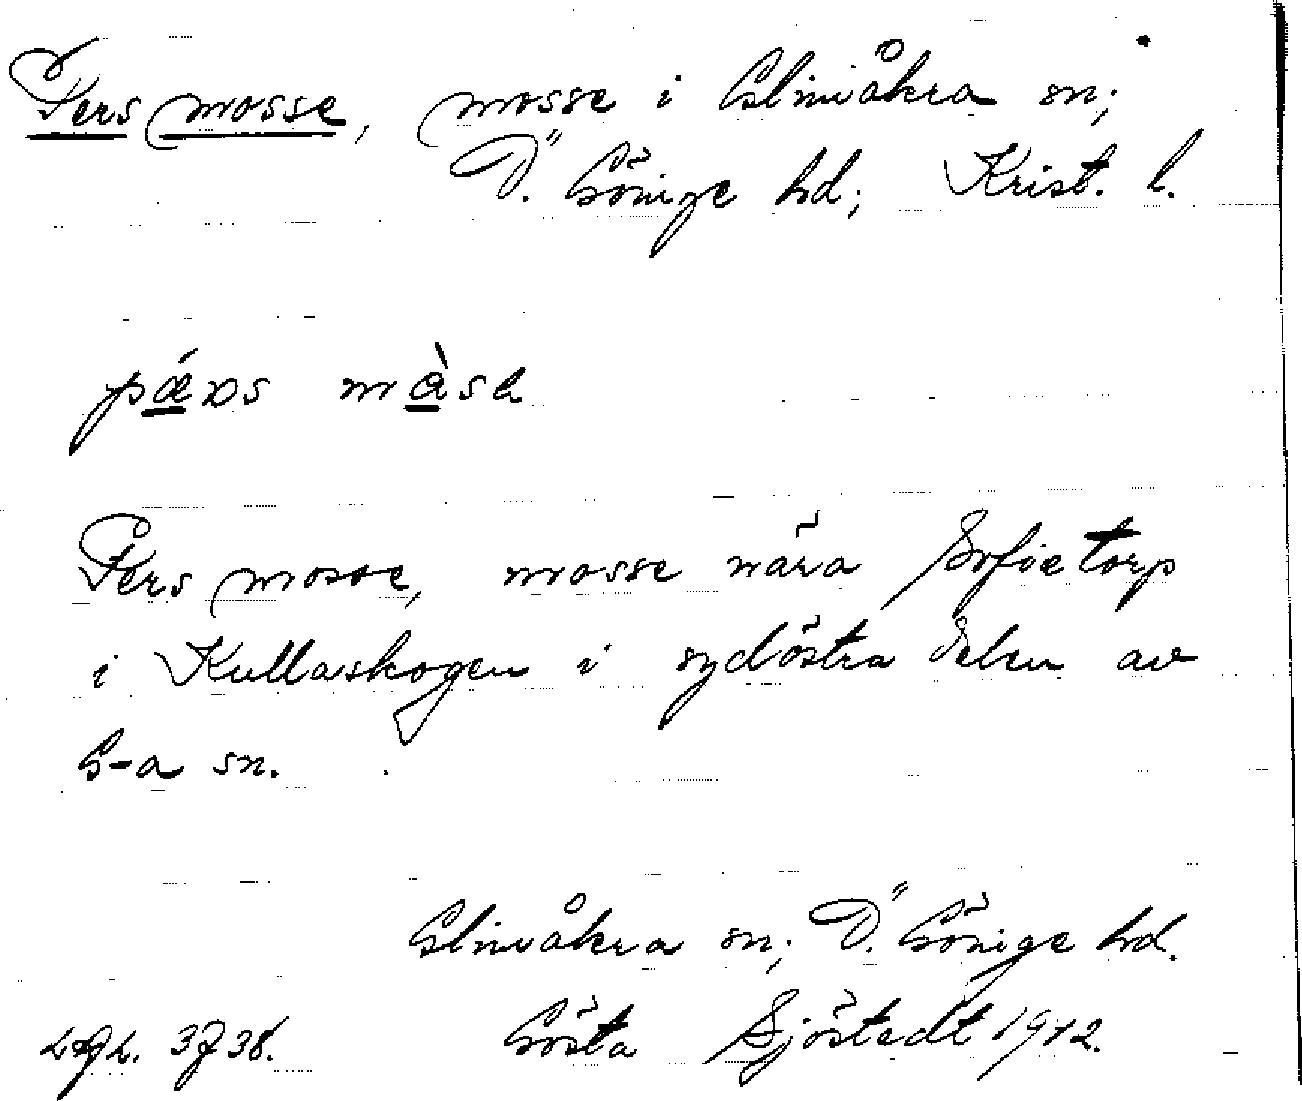 Pers mosse, mosse i Glimåkra sn;
Ö. Göinge hd; Krist. l.
pǽʀs mɑ̀sa
Pers mosse, mosse nära Sofietorp
i Kullaskogen i sydöstra delen av
G-a sn.
Glimåkra sn; Ö. Göinge hd.
3738. Gösta Sjöstedt 1942.